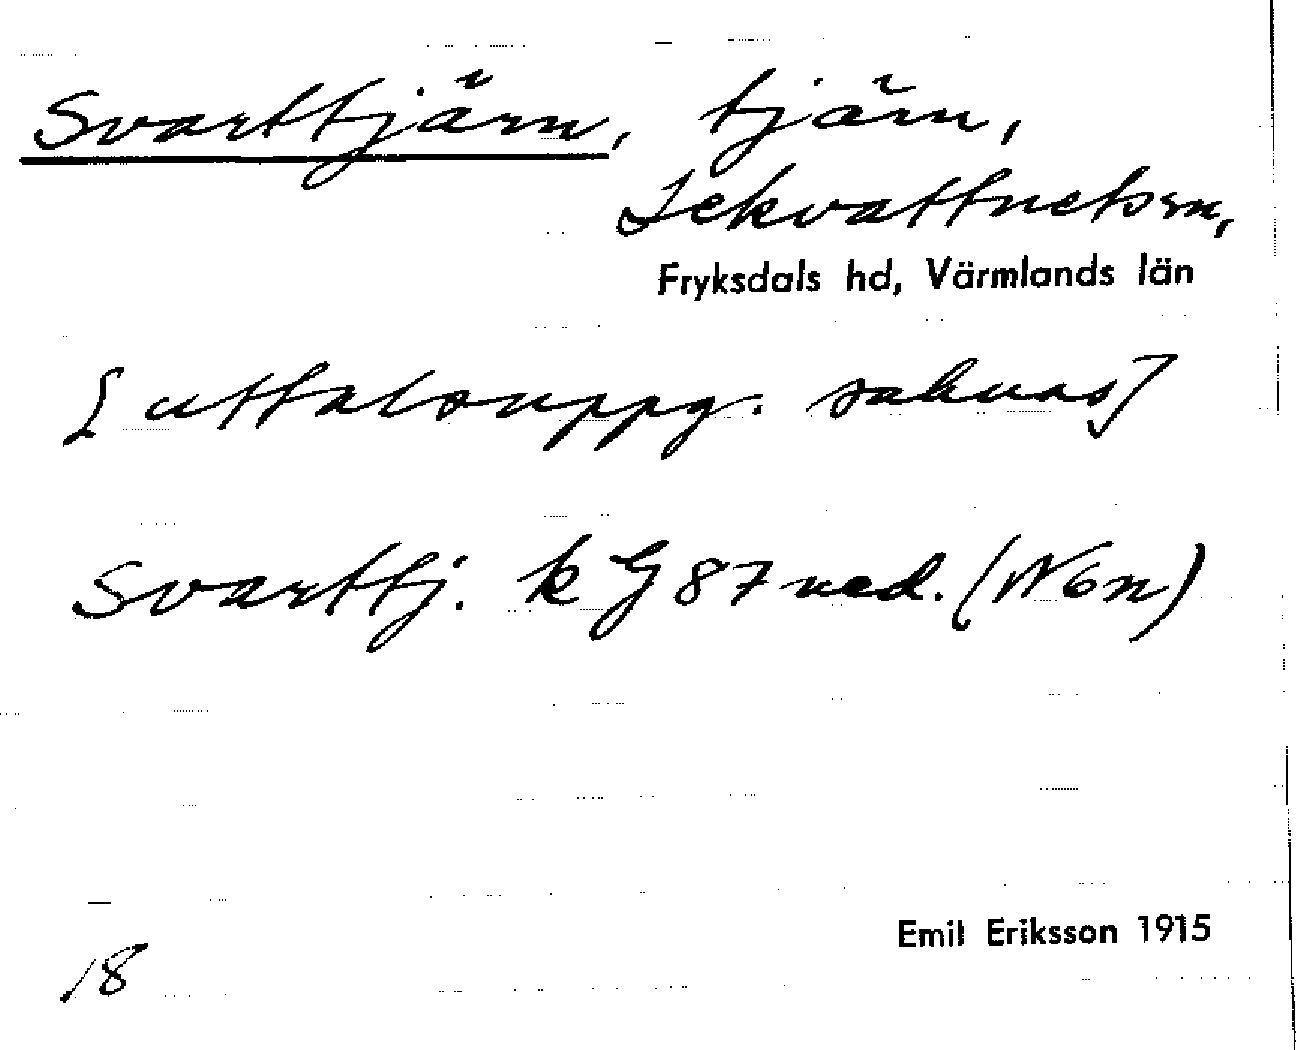 Svarttjärn, tjärn,
Lekvattnets sn,
Fryksdals hd, Värmlands län
[uttalsuppg. saknas]
Svarttj. k G 87 ned. (N ön)
Emil Eriksson 1915
18